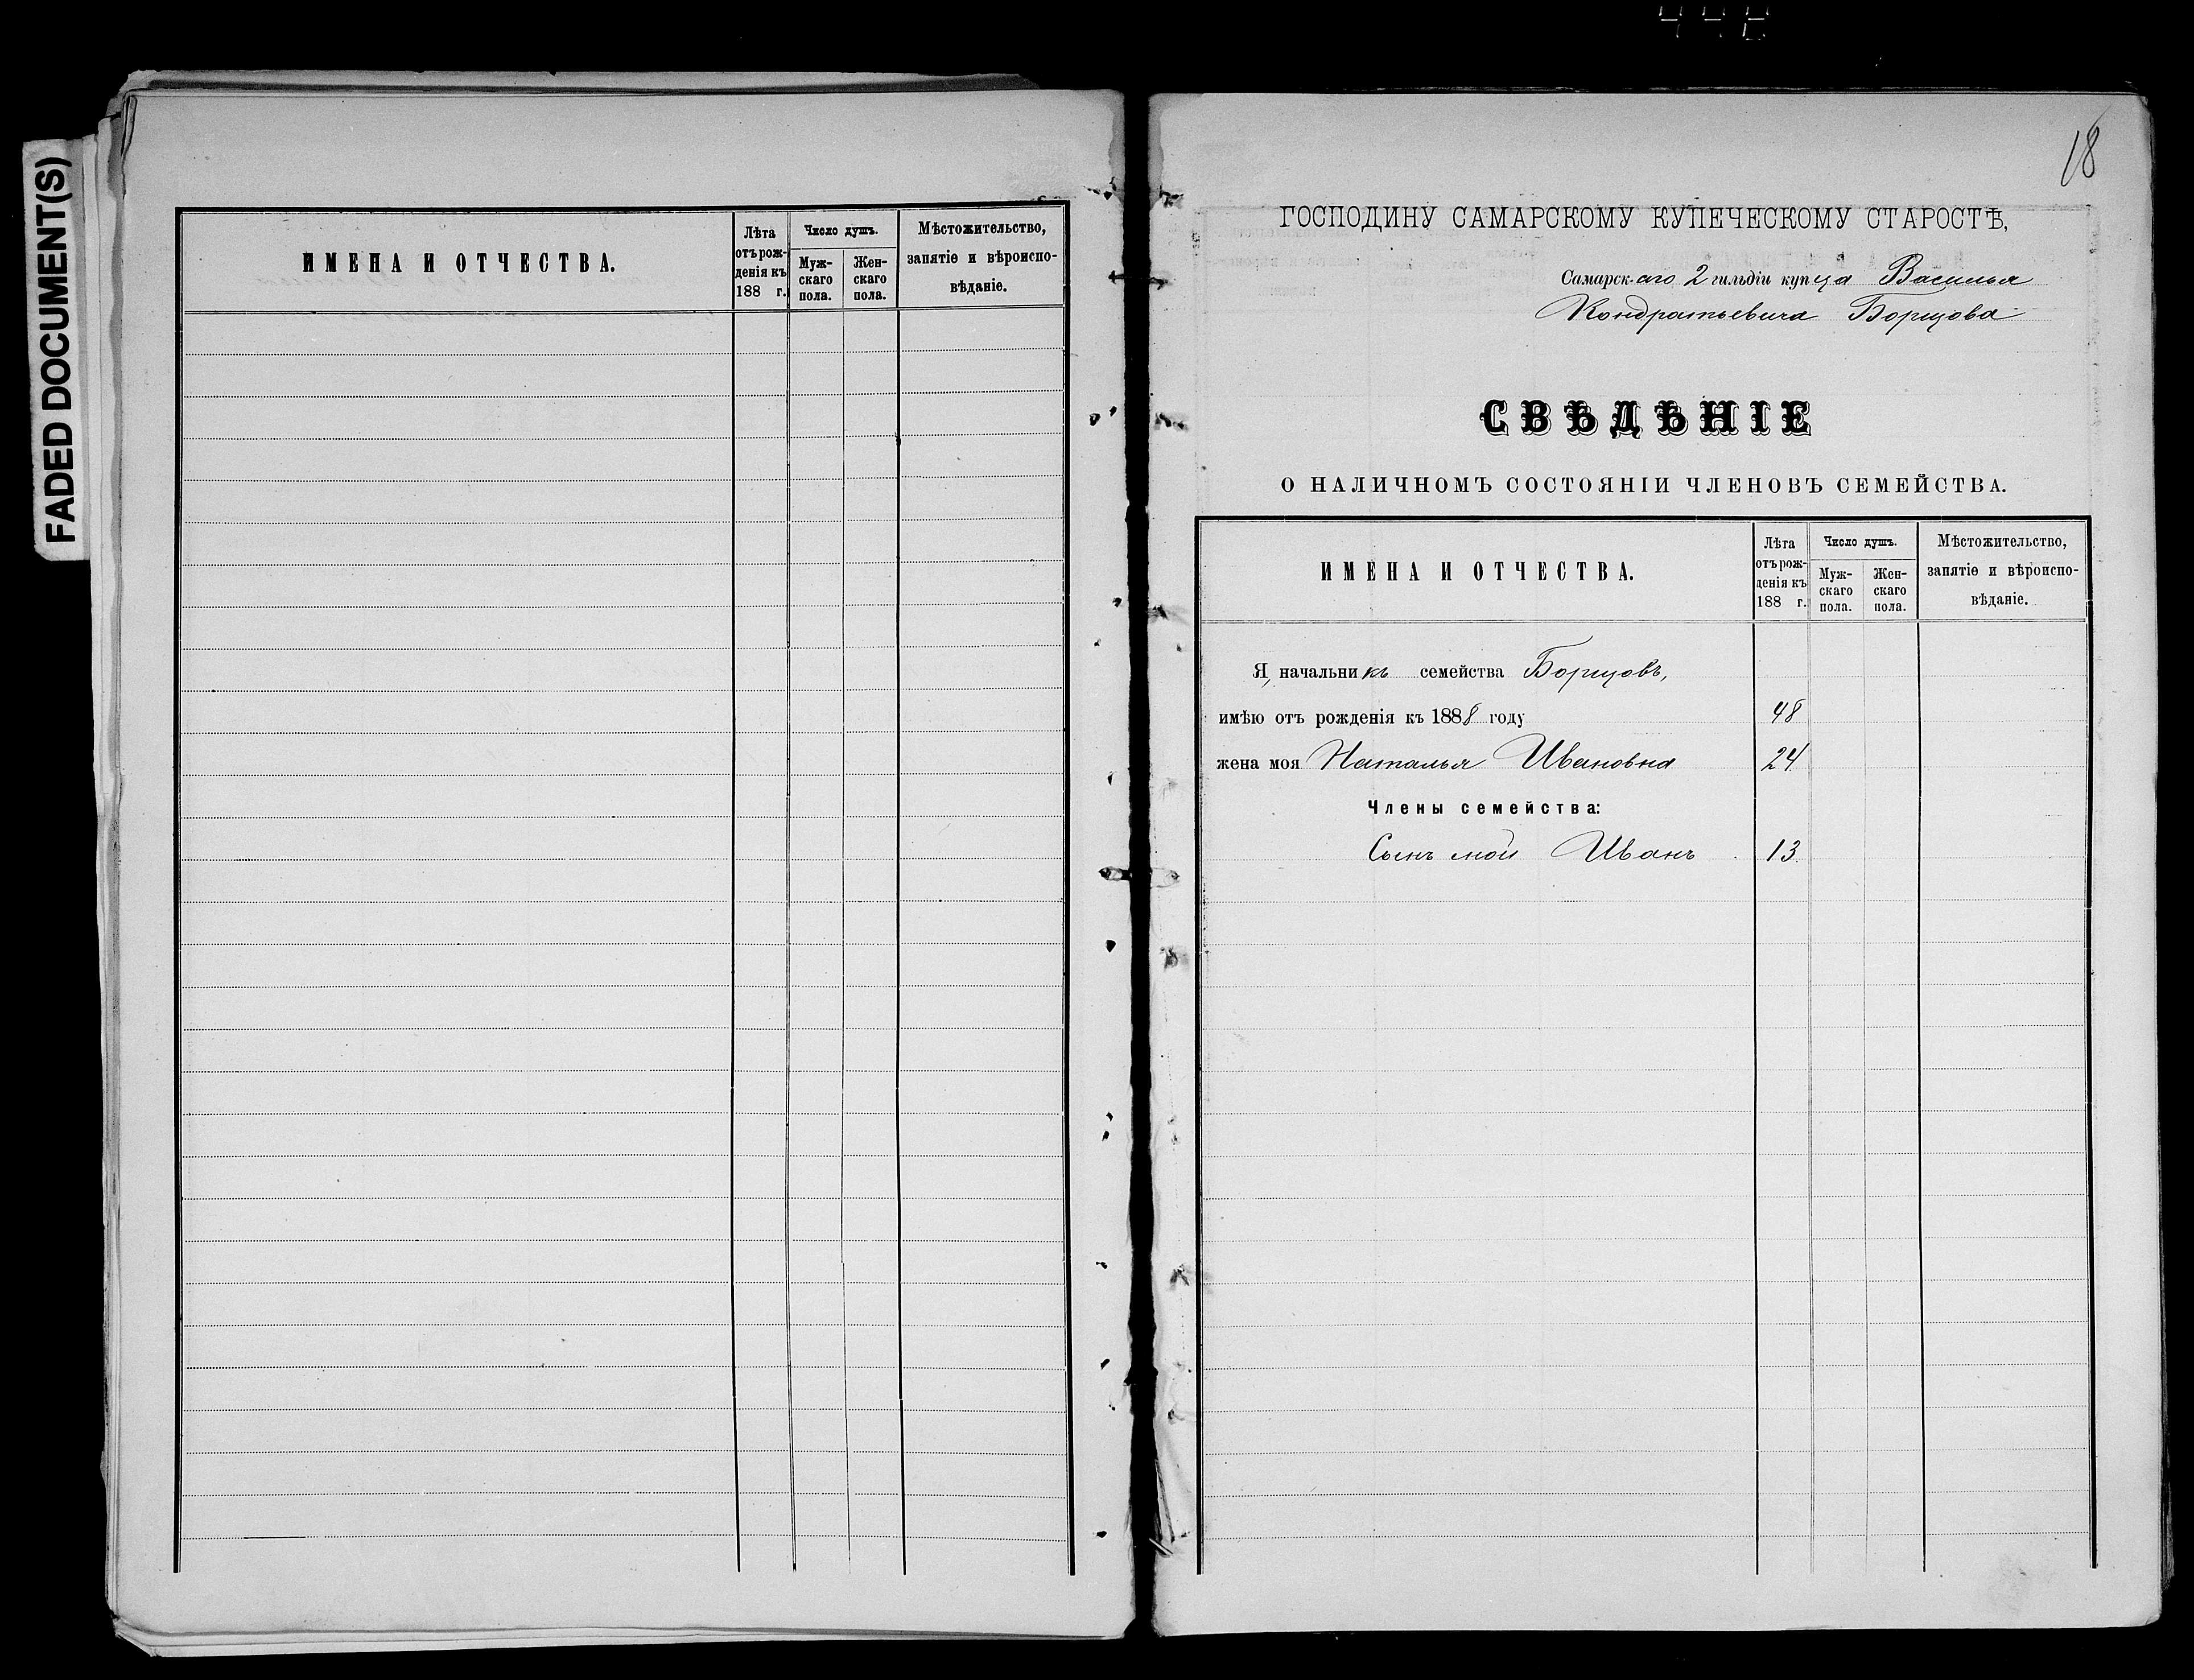 FADED DOCUMENT(S)
ИМЕНА И ОТЧЕСТВА.
Лѣта отъ рожденія къ 188 г.
Число душъ.
Мужскаго пола.
Женскаго пола.
Мѣстожительство, занятіе и вѣроисповѣданіе.
18
ГОСПОДИНУ САМАРСКОМУ КУПЕЧЕСКОМУ СТАРОСТѢ,
Самарскаго 2 гильдіи купца Василья
Кондратьевича Борщова
СВѢДѢНІЕ
О НАЛИЧНОМЪ СОСТОЯНІИ ЧЛЕНОВЪ СЕМЕЙСТВА.
ИМЕНА И ОТЧЕСТВА.
Лѣта отъ рожденія къ 188 г.
Число душъ.
Мужскаго пола.
Женскаго пола.
Мѣстожительство, занятіе и вѣроисповѣданіе.
Я, начальникъ семейства Борщовъ,
имѣю отъ рожденія къ 1888 году 48
жена моя Наталья Ивановна 24
Члены семейства:
Сынъ мой Иванъ 13